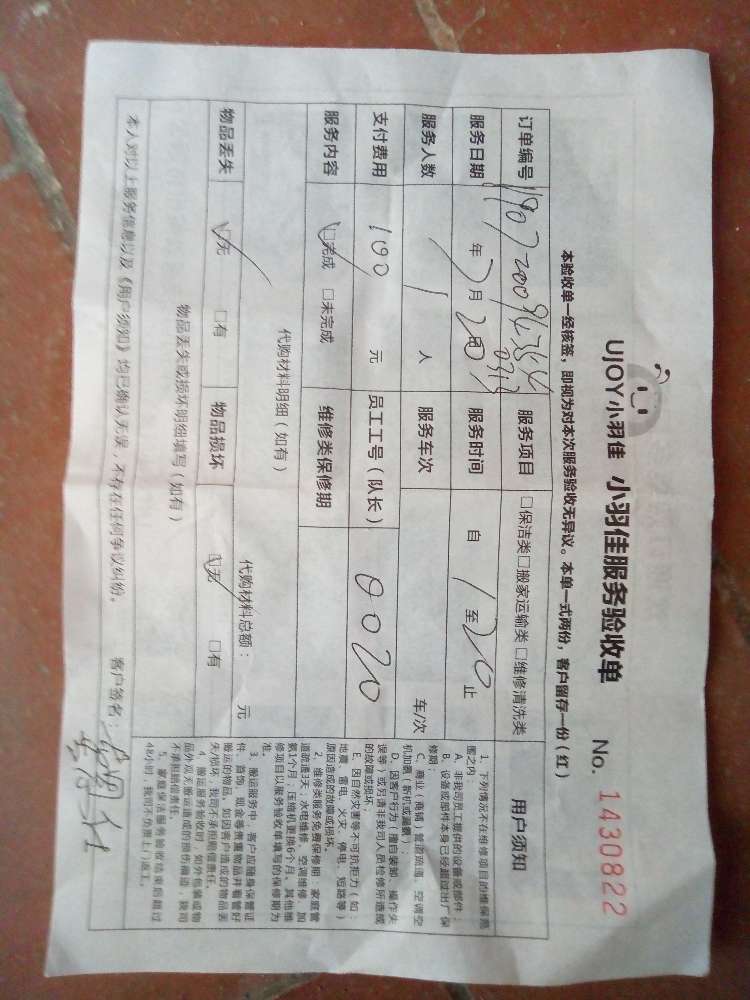 UJOY小羽佳 小羽佳服务验收单 No. 1430822
本验收单一经核签，即视为对本次服务验收无异议。本单一式两份，客户留存一份（红）
订单编号 服务项目 □保洁类□搬家运输类□维修清洗类
服务日期 年 7月 20日 服务时间 自 1 至 20 止
服务人数 1 人 服务车次 车/次
支付费用 100 元 员工工号（队长） 0020
服务内容 □完成 □未完成 维修类保修期
代购材料明细（如有） 代购材料总额： 元
物品丢失 □无 □有 物品损坏 □无 □有
物品丢失或损坏明细填写（如有）
本人对以上服务信息以及《用户须知》均已确认无误，不存在任何争议纠纷。 客户签名：
用户须知
1、下列情况不在维修项目的维保范
围之内：
A、非我司员工提供的设备或部件；
B、设备或部件本身已经超过出厂保
修期；
C、商业（商铺）管道疏通、空调空
机加氟（新机或漏氟）；
D、因客户行为（擅自装卸、操作失
误等）或另请非我司人员检修所造成
的故障或损坏；
E、因自然灾害等不可抗拒力（如：
地震、雷电、火灾、停电、短路等）
原因造成的故障或损坏。
2、维修类服务免费保修期：家庭管
道疏通3天；水电维修、空调维修、加
氟1个月，压缩机更换6个月。其他维
修项目以服务验收单填写的保修期为
准。
3、搬运服务中，客户应随身保管证
件、首饰、现金等贵重物品并看管好
搬运的物品，如因客户造成的物品丢
失/损坏，我司不承担赔偿责任。
4、搬运服务验收时，如外包装或物
品外观无搬运造成的损伤痕迹，我司
不承担赔偿责任。
5、家庭保洁服务验收结束后超过
48小时，我司不负责上门返工。